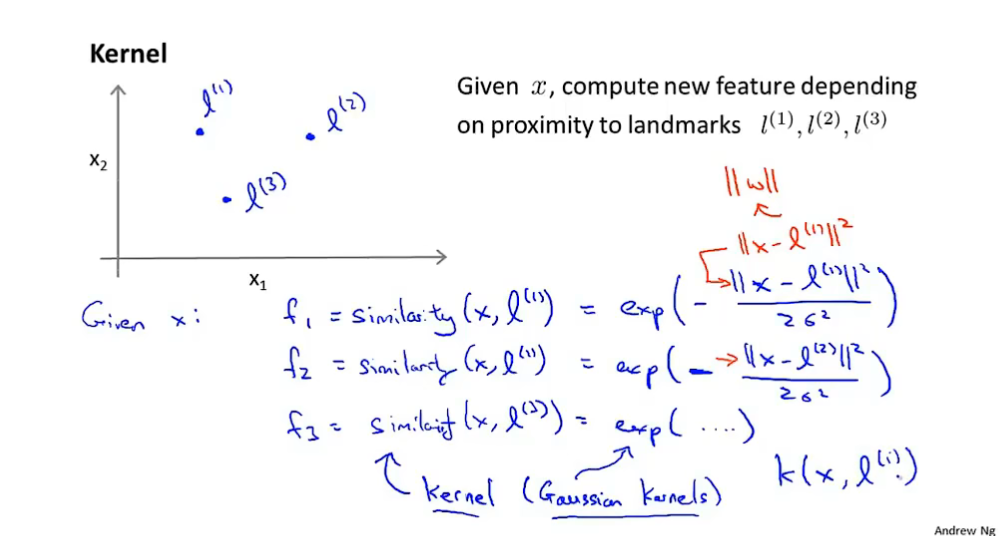 Kernel
l⁽¹⁾
l⁽²⁾
x₂
l⁽³⁾
x₁
Given x, compute new feature depending
on proximity to landmarks l⁽¹⁾, l⁽²⁾, l⁽³⁾
||w||
||x - l⁽¹⁾||²
Given x: f₁ = similarity(x, l⁽¹⁾) = exp(- ||x - l⁽¹⁾||² / 2σ²)
f₂ = similarity(x, l⁽¹⁾) = exp(- ||x - l⁽²⁾||² / 2σ²)
f₃ = similarity(x, l⁽³⁾) = exp(....)
kernel (Gaussian kernels)
k(x, l⁽ⁱ⁾)
Andrew Ng